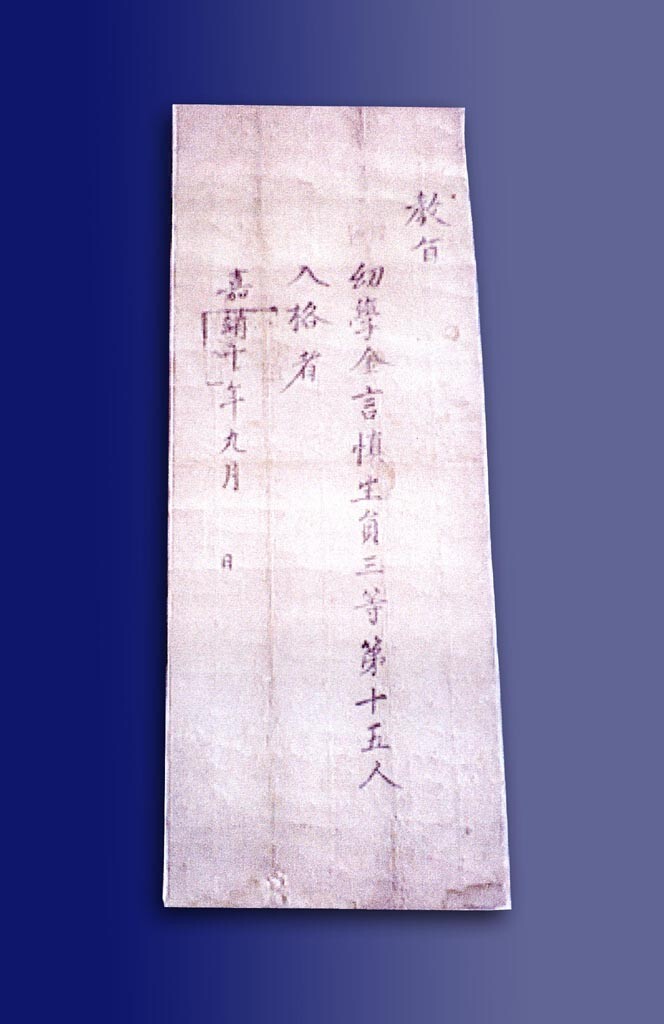 敎旨
幼學金言愼生員三等第十五人
入格者
嘉靖十年九月 日